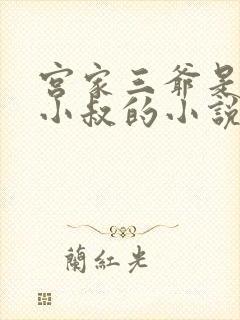 宫家三爷是
小叔的小說
蘭紅光